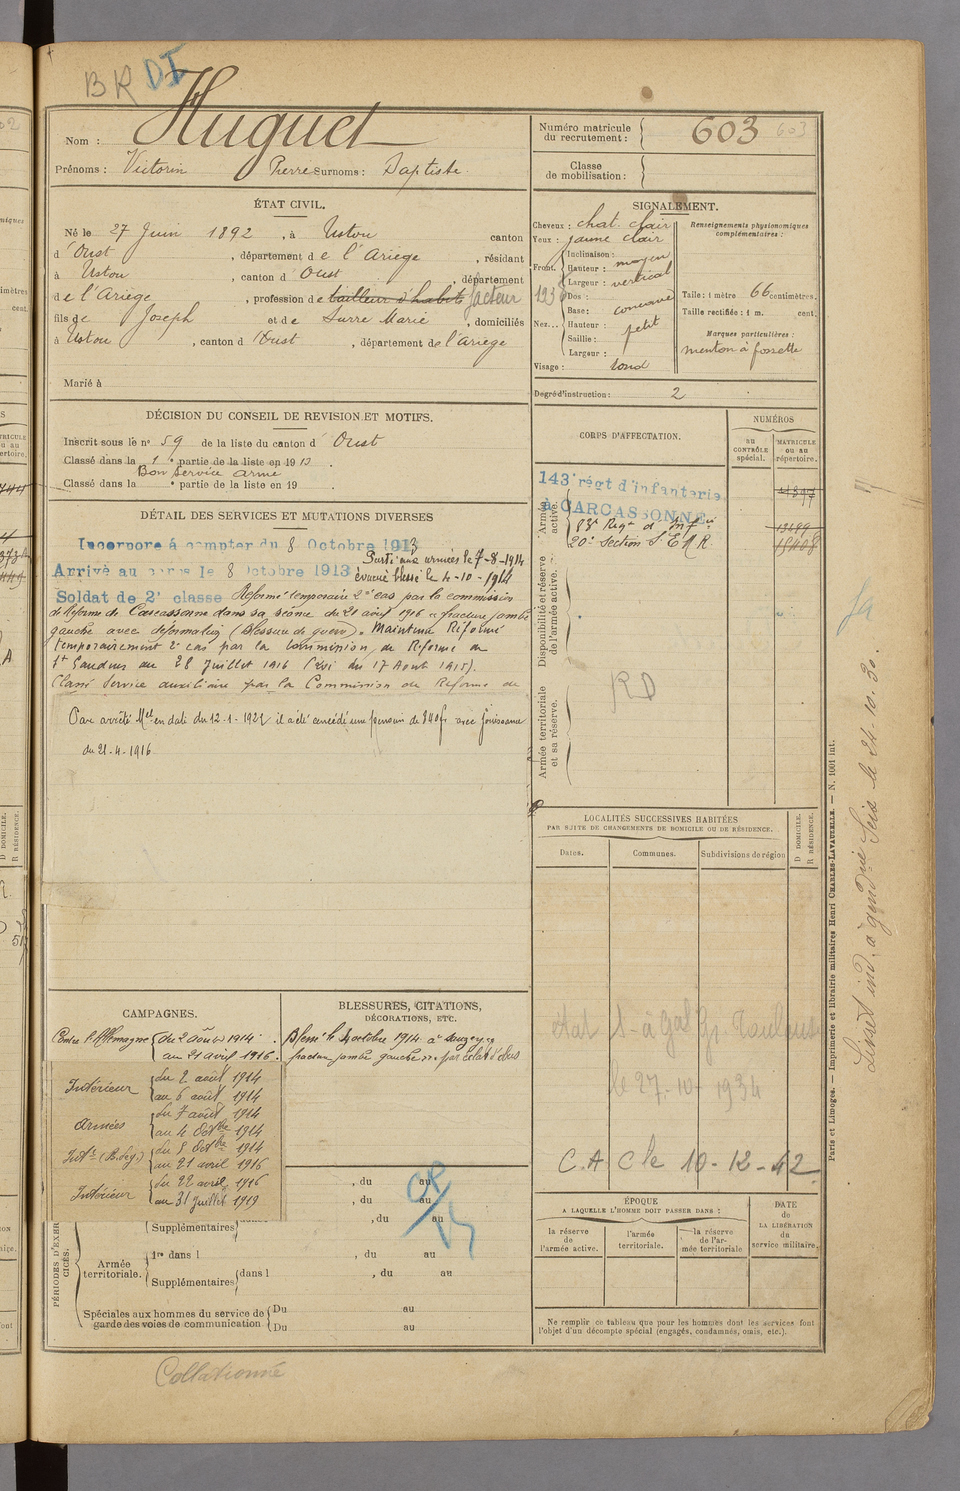 BR DI
Nom : Huguet
Prénoms : Victorin Pierre Surnoms : Baptiste
Numéro matricule du recrutement : 603 603
Classe de mobilisation :
ÉTAT CIVIL.
Né le 27 Juin 1892, à Ustou canton
d'Oust, département de l'Ariège, résidant
à Ustou, canton d'Oust, département
de l'Ariège, profession de tailleur d'habits facteur
fils de Joseph et de Surre Marie, domiciliés
à Ustou, canton d'Oust, département de l'Ariège
Marié à
SIGNALEMENT.
Cheveux : chat. clair
Yeux : jaune clair
Front. Inclinaison :
Hauteur : moyen
Largeur : vertical
Nez... Dos :
Base : concave
Hauteur : petit
Saillie :
Largeur :
Visage : rond
Renseignements physionomiques complémentaires :
Taille : 1 mètre 66 centimètres.
Taille rectifiée : 1 m. cent.
Marques particulières :
menton à fossette
Degré d'instruction : 2
DÉCISION DU CONSEIL DE REVISION ET MOTIFS.
Inscrit sous le n° 59 de la liste du canton d'Oust
Classé dans la 1e partie de la liste en 1913.
Bon service armé
Classé dans la e partie de la liste en 19
DÉTAIL DES SERVICES ET MUTATIONS DIVERSES
Incorporé à compter du 8 Octobre 1913
Parti aux armées le 7-8-1914
Arrivé au corps le 8 Octobre 1913 évacué blessé le 4-10-1914
Soldat de 2e classe Réformé temporaire 2e cas par la commission
de Réforme de Carcassonne dans sa séance du 21 août 1916 « fracture jambe
gauche avec déformation (Blessure de guerre). Maintenu Réformé
temporairement 2e cas par la Commission de Réforme de
St Gaudens du 28 Juillet 1916
Classé Service auxiliaire par la Commission de Réforme de
Par arrêté Mel en date du 12-1-1921 il a été concédé une pension de 840f avec jouissance
du 21-4-1916
CORPS D'AFFECTATION.
NUMÉROS
au CONTRÔLE spécial.
MATRICULE ou au répertoire.
Armée active.
143e régt d'infanterie
à CARCASSONNE
83e Regt d'Infie
20e Section S E M R
Disponibilité et réserve de l'armée active.
Armée territoriale et sa réserve.
RD
LOCALITÉS SUCCESSIVES HABITÉES
PAR SUITE DE CHANGEMENTS DE DOMICILE OU DE RÉSIDENCE.
Dates.
Communes.
Subdivisions de région
D DOMICILE.
R RÉSIDENCE.
le 27-10-1934
C.A C le 10-12-42
CAMPAGNES.
Contre l'Allemagne du 2 août 1914
au 21 avril 1916.
Intérieur du 2 août 1914
au 6 août 1914
Armées du 7 août 1914
au 4 Octbre 1914
Intr du 5 Octbre 1914
au 21 avril 1916
Intérieur du 22 avril 1916
au 31 juillet 1919
BLESSURES, CITATIONS, DÉCORATIONS, ETC.
Blessé le 4 octobre 1914 à
fracture jambe gauche par éclat d'obus
PÉRIODES D'EXERCICES.
, du au
, du au
Supplémentaires , du au
Armée territoriale. 1re dans l , du au
Supplémentaires dans l , du au
Spéciales aux hommes du service de garde des voies de communication Du au
Du au
ÉPOQUE
A LAQUELLE L'HOMME DOIT PASSER DANS :
la réserve de l'armée active.
l'armée territoriale.
la réserve de l'armée territoriale
DATE du LA LIBÉRATION du service militaire.
Ne remplir ce tableau que pour les hommes dont les services font
l'objet d'un décompte spécial (engagés, condamnés, omis, etc.).
Paris et Limoges. — Imprimerie et librairie militaires Henri CHARLES-LAVAUZELLE. — N. 1001 int.
Livret ind. à gendrie Seix le 24.10.30.
Collationné